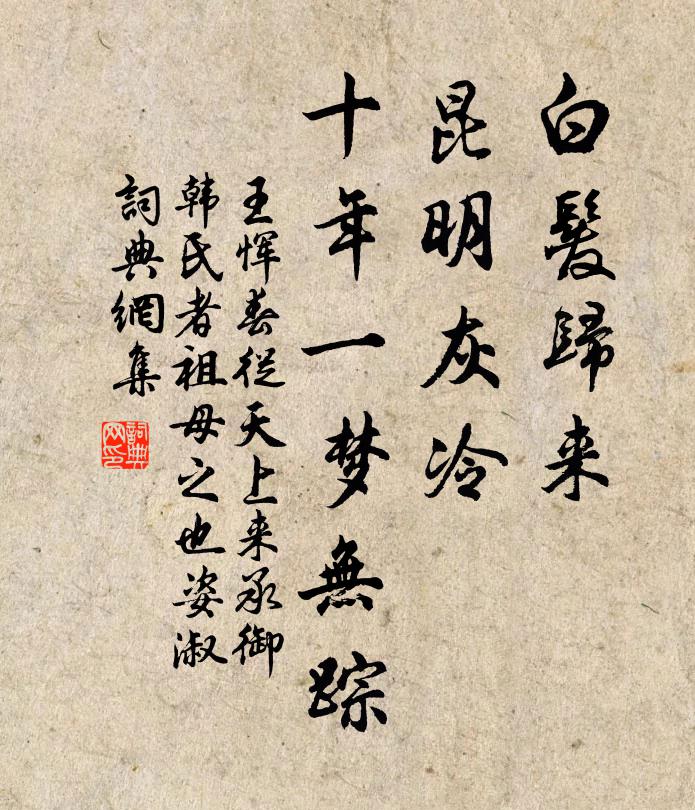 白髮歸来
昆明灰冷
十年一梦無踪
王恽春從天上来承御
韩氏者祖母之也姿淑
詞典網集
詞典
网印